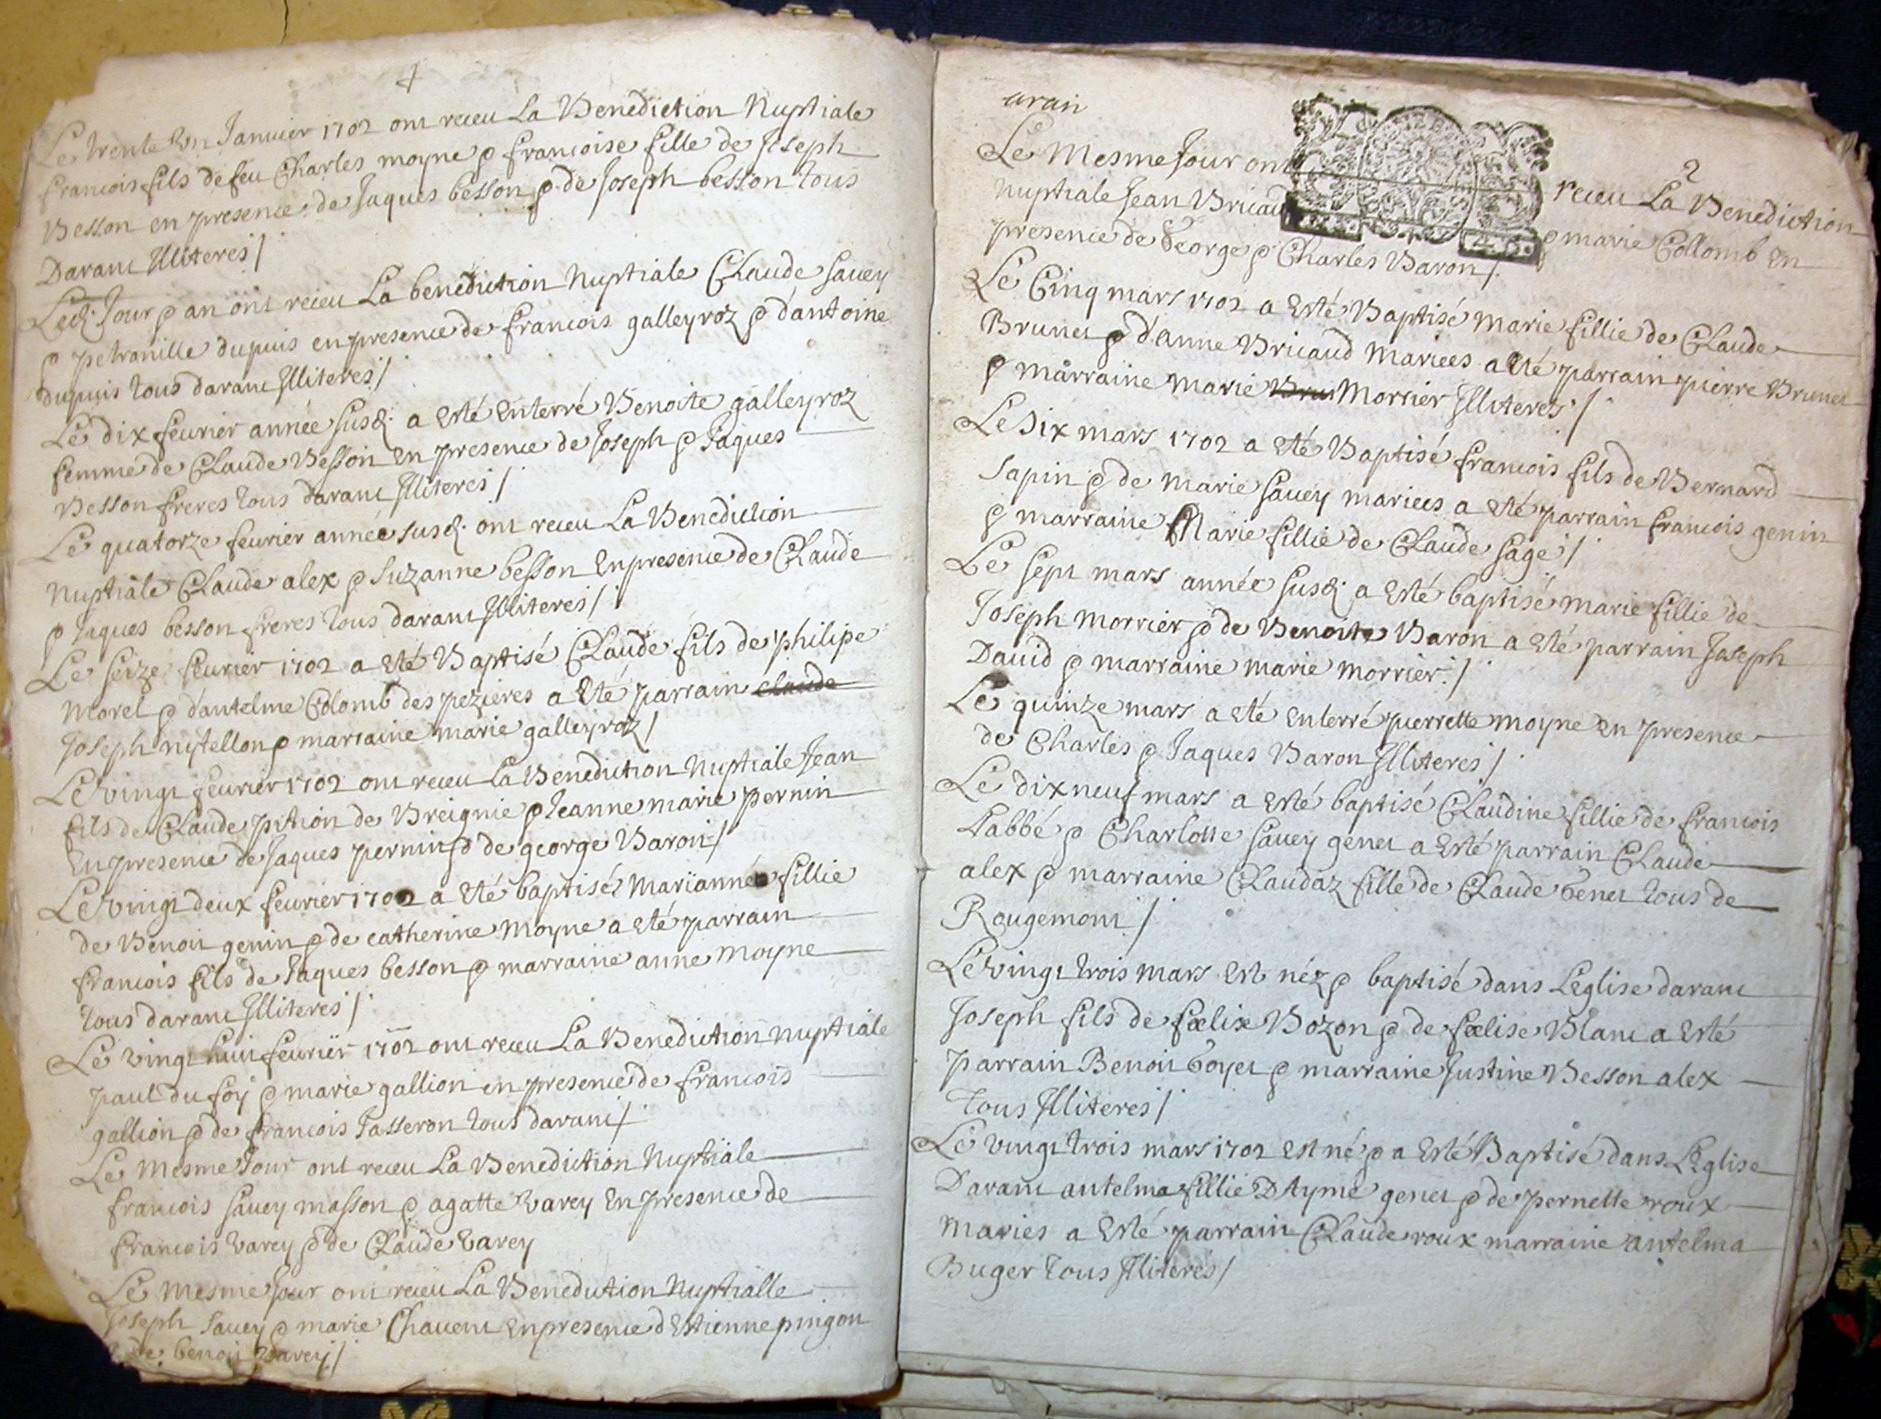 Le trente Un Janvier 1702 ont receu La Benediction Nuptiale
francois fils de feu Charles moyne & francoise fille de Joseph
Besson en presence de Jaques besson & de Joseph besson tous
Daranc Illiteres /
Led. Jour & an ont receu La benediction Nuptiale Claude savey
& petranille dupuis en presence de francois galleyroz & d'antoine
dupuis tous daranc Illiteres /
Le dix fevrier année susd. a Esté Enterré Benoite galleyroz
femme de Claude Besson En presence de Joseph & Jaques
Besson freres tous daranc Illiteres /
Le quatorze fevrier année susd. ont receu La Benediction
Nuptiale Claude alex & Suzanne besson En presence de Claude
& Jaques besson freres tous daranc Illiteres /
Le seize fevrier 1702 a Eté Baptisé Claude fils de philipe
Morel & d'antelme Colomb des pezieres a Eté parrain claude
Joseph nytellon & marraine marie galleyroz /
Le vingt fevrier 1702 ont receu La Benediction Nuptiale Jean
fils de Claude pition de Breignie & Jeanne marie pernin
En presence de Jaques pernin & de george Baron /
Le vingt deux fevrier 1702 a Eté baptisée Marianne fillie
de Benoit genin & de catherine Moyne a Eté parrain
francois fils de Jaques besson & marraine anne Moyne
tous daranc Illiteres /
Le vingt huit fevrier 1702 ont receu La Benediction nuptiale
paul du foy & marie gallion en presence de francois
gallion & de francois Tasseron tous daranc /
Le Mesme Jour ont receu La Benediction Nuptiale
francois savey masson & agatte varey En presence de
francois varey & de Claude varey
Le Mesme Jour ont receu La Benediction Nuptialle
Joseph Savey & marie Chavent En presence d'Estienne pingon
& de benoit varey /
aran
2
Le Mesme Jour ont receu La Benediction
Nuptiale Jean Bricaud & marie Collomb En
presence de George & Charles Baron /
Le Cinq mars 1702 a Esté Baptisé Marie fillie de Claude
Brunet & d'anne Bricaud Mariees a Eté parrain pierre Brunet
& marraine marie Bru Morrier Illiteres /
Le Six mars 1702 a Eté Baptisé francois fils de Bernard
Sapin & de marie savey mariees a Eté parrain francois genin
& marraine Marie fillie de Claude sage /
Le sept mars année susd. a Esté baptisé marie fillie de
Joseph Morrier & de Benoite Baron a Eté parrain Joseph
David & marraine marie morrier /
Le quinze mars a Eté Enterré pierrette moyne En presence
de Charles & Jaques Baron Illiteres /
Le dix neuf mars a Esté baptisé Claudine fillie de francois
Labbé & Charlotte savey genet a Esté parrain Claude
alex & marraine Claudaz fille de Claude Genet tous de
Rougemont /
Le vingt trois mars Est néz & baptisé dans Leglise daranc
Joseph fils de foelix Bozon & de foelise Blanc a Esté
parrain Benoit Goyet & marraine Justine Besson alex
tous Illiteres /
Le vingt trois mars 1702 Est né & a Esté Baptisé dans L'Eglise
Daranc antelma fillie D'Ayme genet & de pernette roux
Maries a Esté parrain Claude roux marraine antelma
Buger tous Illiteres /